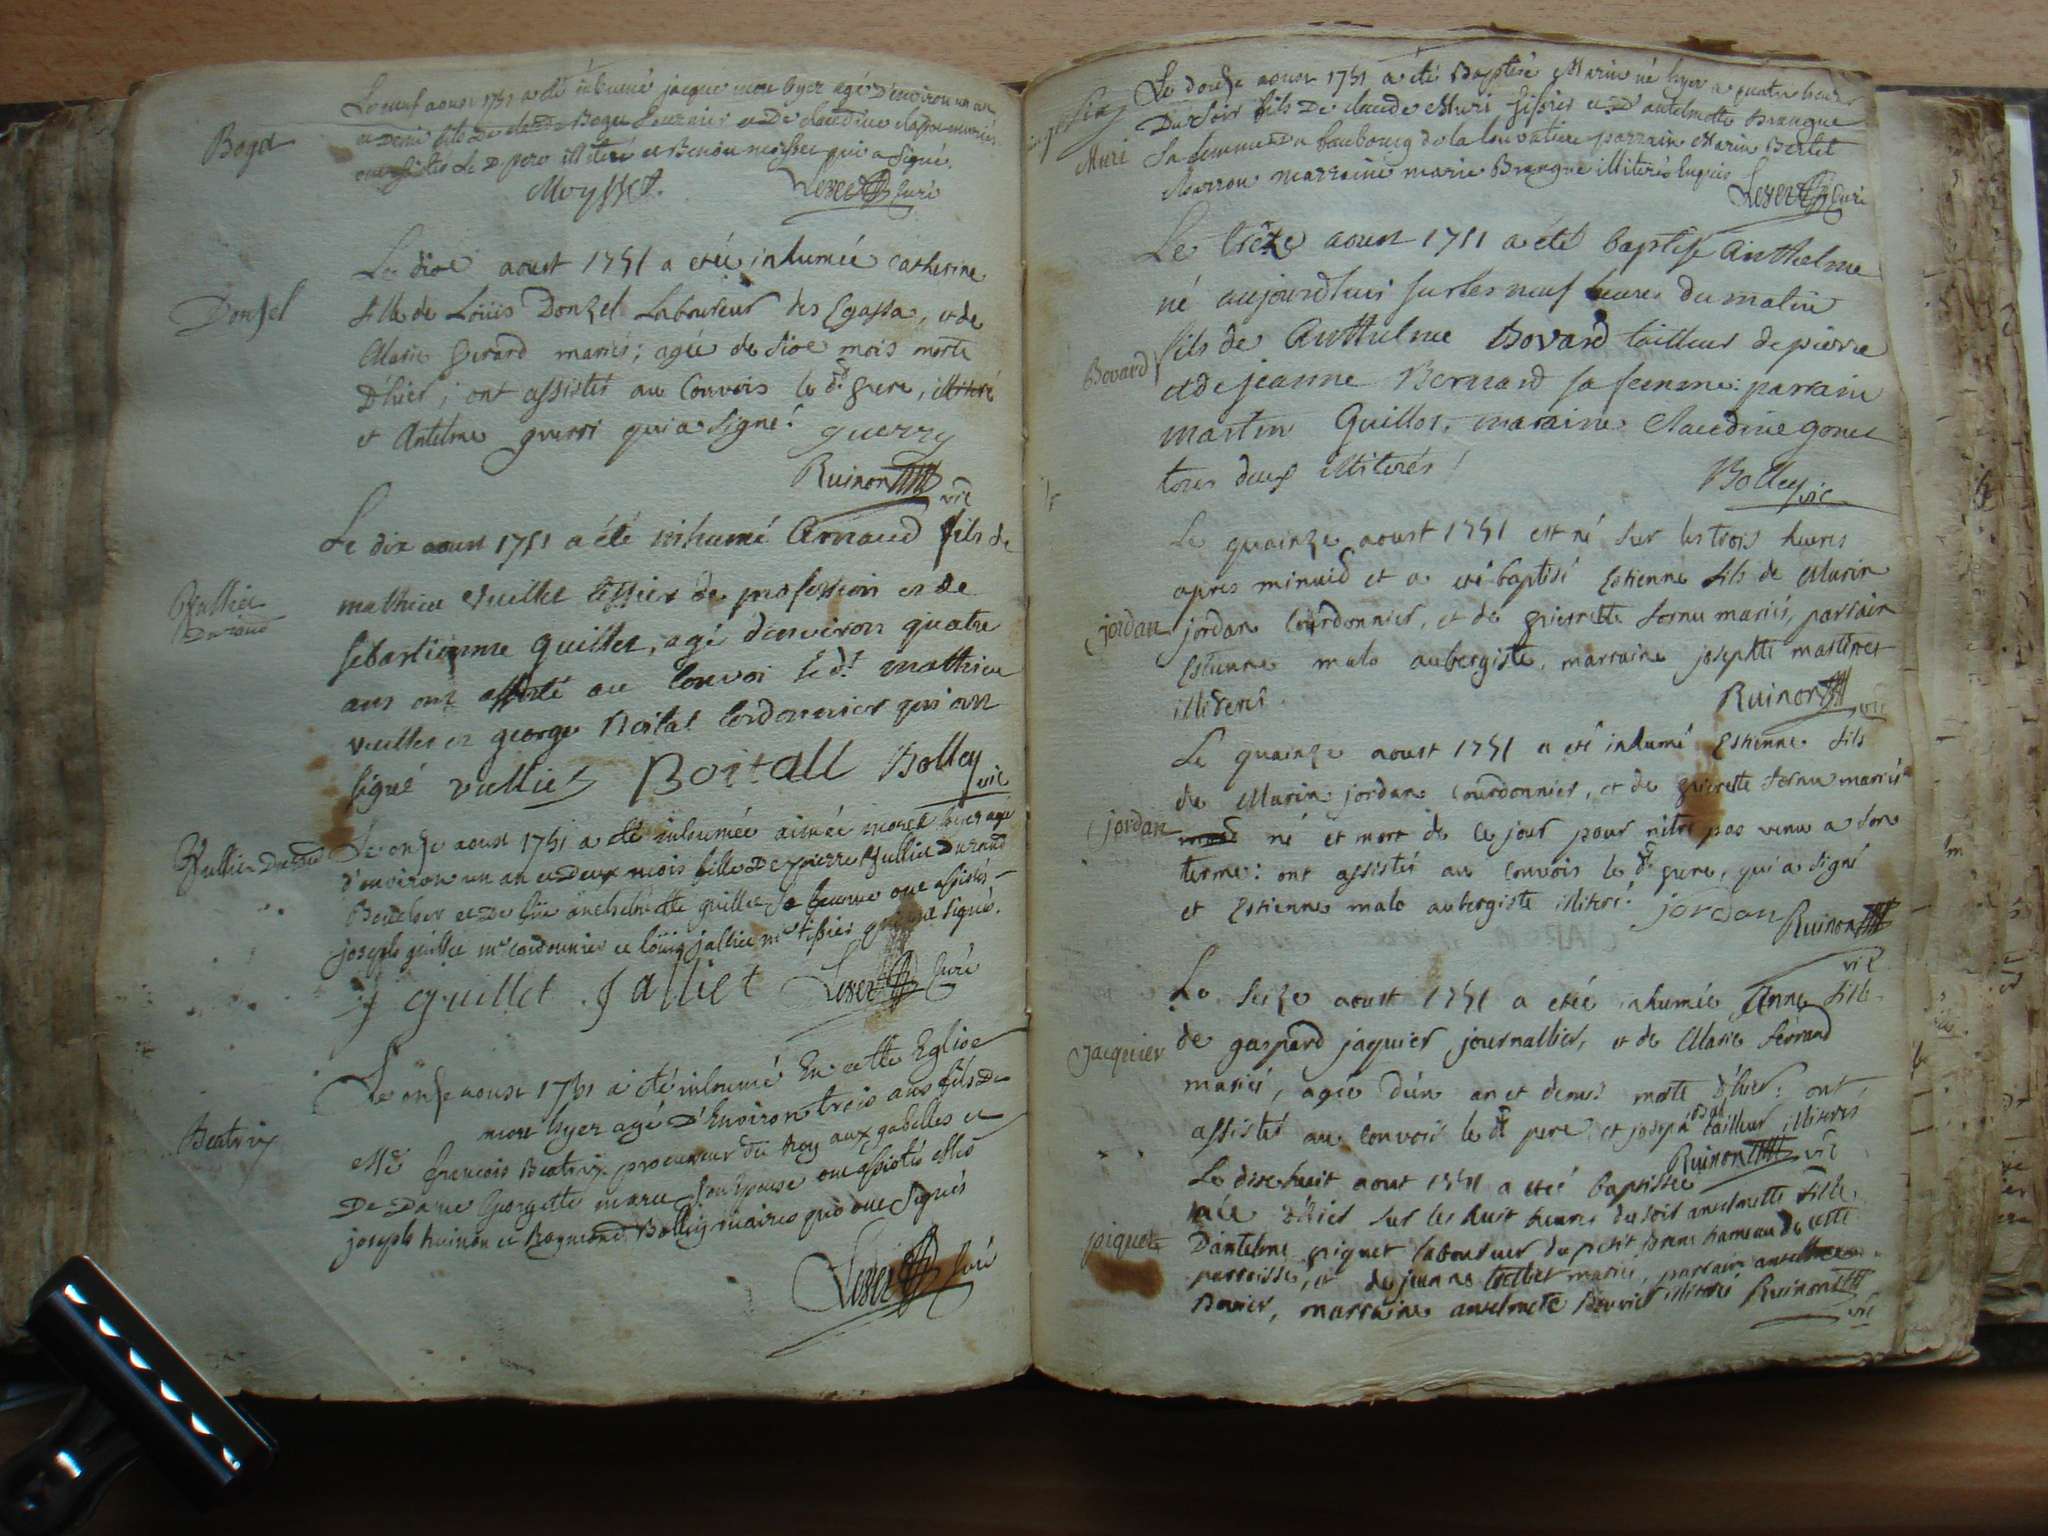 Le neuf aoust 1751 a été inhumé jacque mort hyer agé D'environ un an
et Demi fils de claude Boget et De claudine mariés
ont assistés Le D. pere illiteré et Benoit moisset qui a signé.
Boget
Moysset. Curé
Le dixe aoust 1751 a etée inhumée Catherine
fille de Loüis Donzel Laboureur des Egassa, et de
Donzel
Marie Gerard mariés; agée de dixe mois morte
D'hier; ont assistés au Convois le dt. pere, illiteré
et Antelme guerri qui a signé. guerry
Ruinon vic
Le dix aoust 1751 a été inhumé Arnaud fils de
mathieu Vuillet tissier de profession et de
Sebastienne Quillet, agé d'environ quatre
ans ont assisté au Convoi le dt. mathieu
vuillet et george Boital Cordonnier qui ont
signé vullie Boitall Bolley vic
Le onze aoust 1751 a été inhumée aimée morte hier agée
d'environ un an et Deux mois fille De pierre Vullie Durand
et De anthelmette quillet Sa femme ont assistés
joseph quillet me Cordonnier et loüis jalliet me tissier qui ont signé.
j quillet Jalliet Curé
Le onze aoust 1751 a été inhumé En cette Eglise
mort hyer agé D'Environ trois ans fils De
Beatrix
Me françois Beatrix procureur du Roy aux gabelles et
De Dame Georgette marie Son Epouse ont assistés
joseph Ruinon et Raymond Bolley vicaires qui ont signés
Curé
Le douze aoust 1751 a été Baptisé Marin né hyer a quatre heures
Du Soir fils De claude Muri Tissier et D'antelmette Brangue
Muri
Sa femme Du faubourg de la parrain Marin Bertet
marraine marie Brangue illiterés
Curé
Le treize aoust 1751 a été baptisé Anthelme
né aujourdhui sur les neuf heures du matin
fils de Anthelme Bovard tailleur de pierre
Bovard
et de jeanne Bernard sa femme: parrain
martin Quillot, maraine Claudine gonet
tous deux illiterés!
Bolley vic
Le quainze aoust 1751 est né sur les trois heures
apres minuid et a eté baptisé Estienne fils de Marin
jordan jordan Courdonnier, et de pierrette fornu mariés, parrain
Estienne malo aubergiste, marraine josephte martinet
illiterés.
Ruinon vic
Le quainze aoust 1751 a eté inhumé Estienne fils
de Marin jordan Courdonnier, et de pierrette fornu mariés
jordan né et mort de ce jour pour n'itre pas venu a son
terme: ont assistés au convois le dt. pere, qui a signé
et Estienne malo aubergiste illiteré. jordan Ruinon
vic
Le seize aoust 1751 a etée inhumée Anne fille
de gaspard jaquier journallier, et de Marie ferrand
jacquier
mariés, agée d'un an et demi morte D'hier: ont
assistés au convois le dt. pere et joseph tailleur illiterés
Ruinon vic
Le dixehuit aoust 1751 a eté baptistée
née d'hier sur les huit heures du soir anselmette fille
D'antelme piquet laboureur du petit Brens hameau de cette
piquet
parroisse, et de jeanne mariés, parrain anselme
Bovier, marraine anselmete Bovier illiterés Ruinon
vic